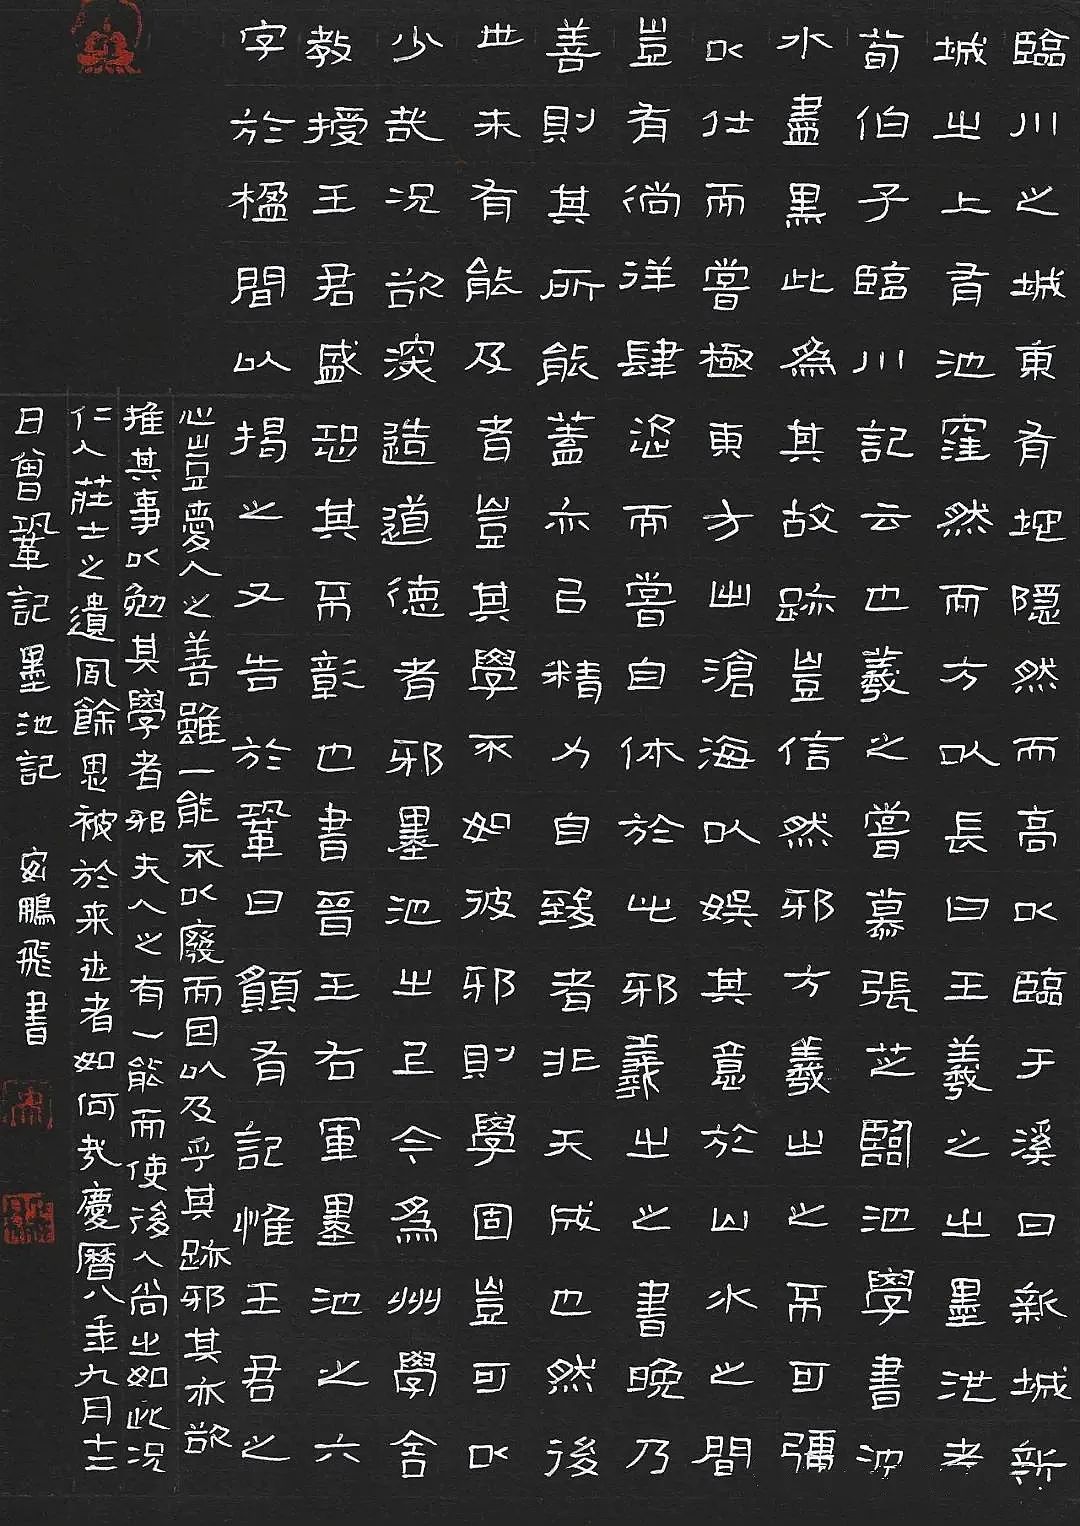 臨川之城東有地隱然而高以臨于溪曰新城新
城之上有池窪然而方以長曰王羲之之墨池者
荀伯子臨川記云也羲之嘗慕張芝臨池學書池
水盡黑此為其故跡豈信然邪方羲之之不可彊
以仕而嘗極東方出滄海以娛其意於山水之間
豈有徜徉肆恣而嘗自休於此邪羲之之書晚乃
善則其所能蓋亦以精力自致者非天成也然後
世未有能及者豈其學不如彼邪則學固豈可以
少哉況欲深造道德者邪墨池之上今為州學舍
教授王君盛恐其不彰也書晉王右軍墨池之六
字於楹間以揭之又告於鞏曰願有記惟王君之
心豈愛人之善雖一能不以廢而因以及乎其跡邪其亦欲
推其事以勉其學者邪夫人之有一能而使後人尚之如此況
仁人莊士之遺風餘思被於来世者如何哉慶曆八年九月十二
日曾鞏記墨池記 安鵬飛書